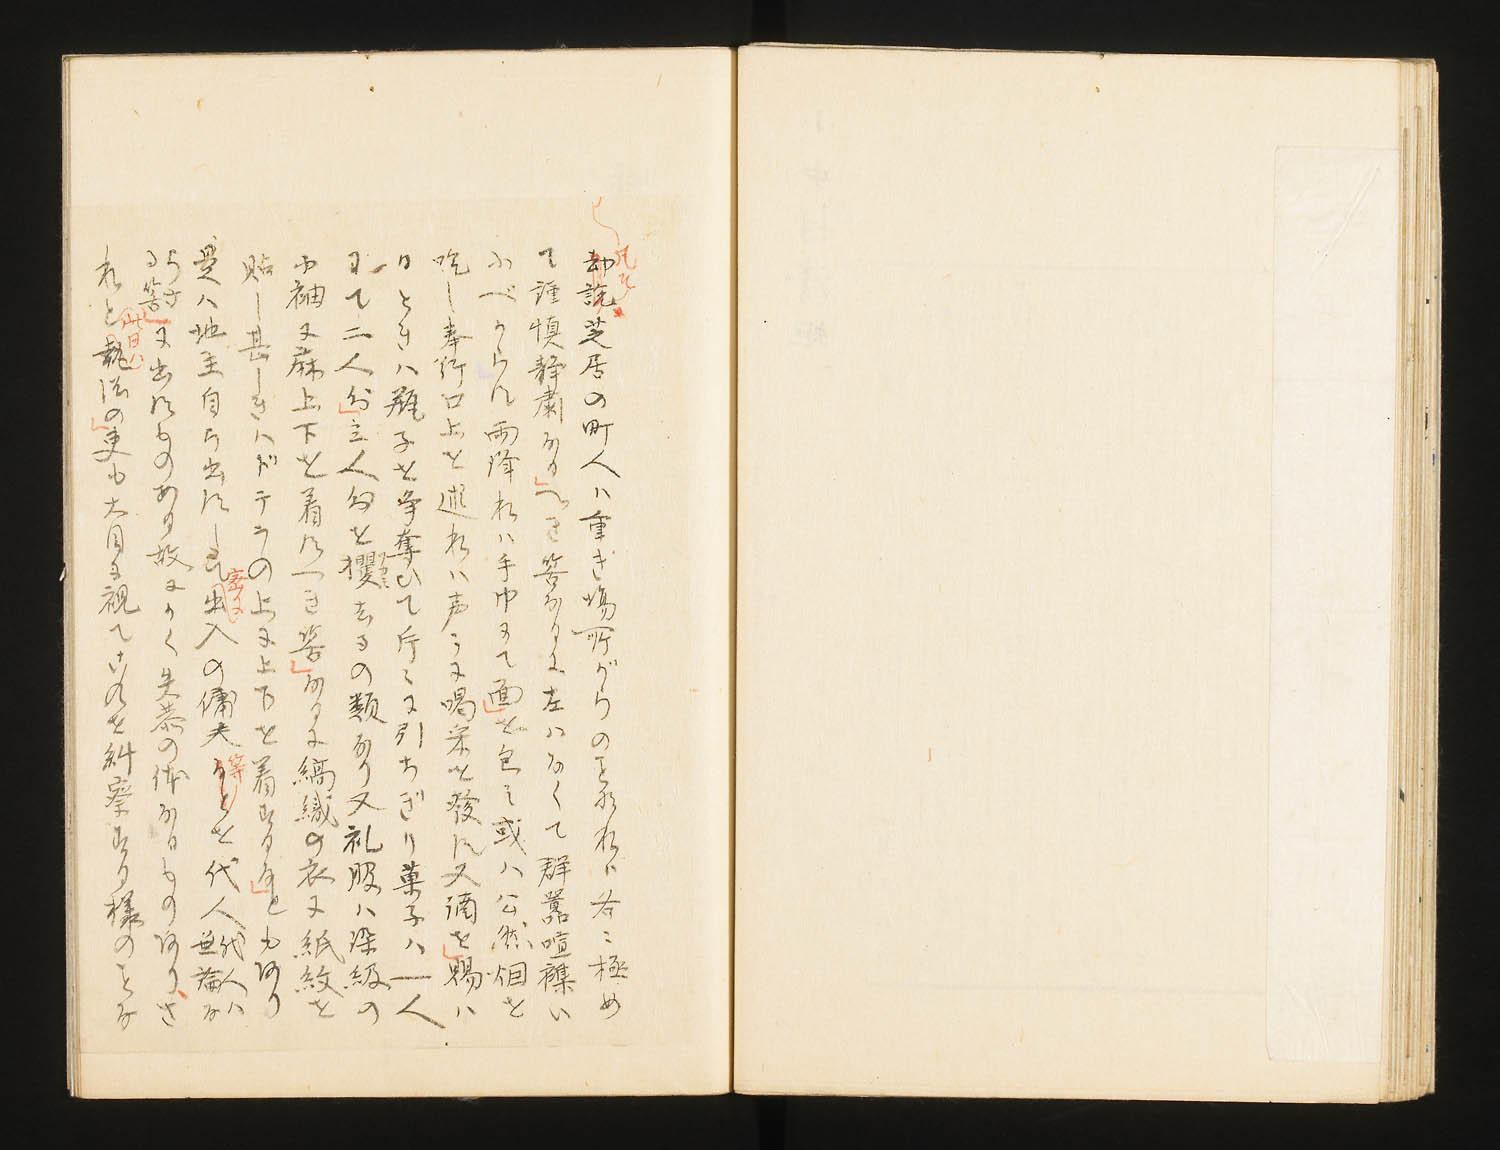 却説芝居の町人ハ重き場所がらのことなれは各〻極め
て謹慎静粛なるへき筈なるに左ハなくて群囂喧襍い
ふべからす雨降れハ手巾にて面を包み或ハ公然傘を
吃し奉行口上を述れハ声〻に喝采を發す又酒を賜ハ
るときハ瓶子を争奪ひて片〻に引ちぎり菓子ハ一人
にて二人分三人分を攫去るの類なり又礼服ハ染級の
小袖に麻上下を着すへき筈なるに縞織の衣に紙紋を
貼し甚しきハドテラの上に上下を着するなども有り
是ハ地主自ら出すしも密に出入の傭夫等を代人代人ハ無論な
る筈に出すものある故にかく失恭の体なるもの有りさ
れと此日ハ執法の吏も大目に視てこれを糾察せさる様のことな